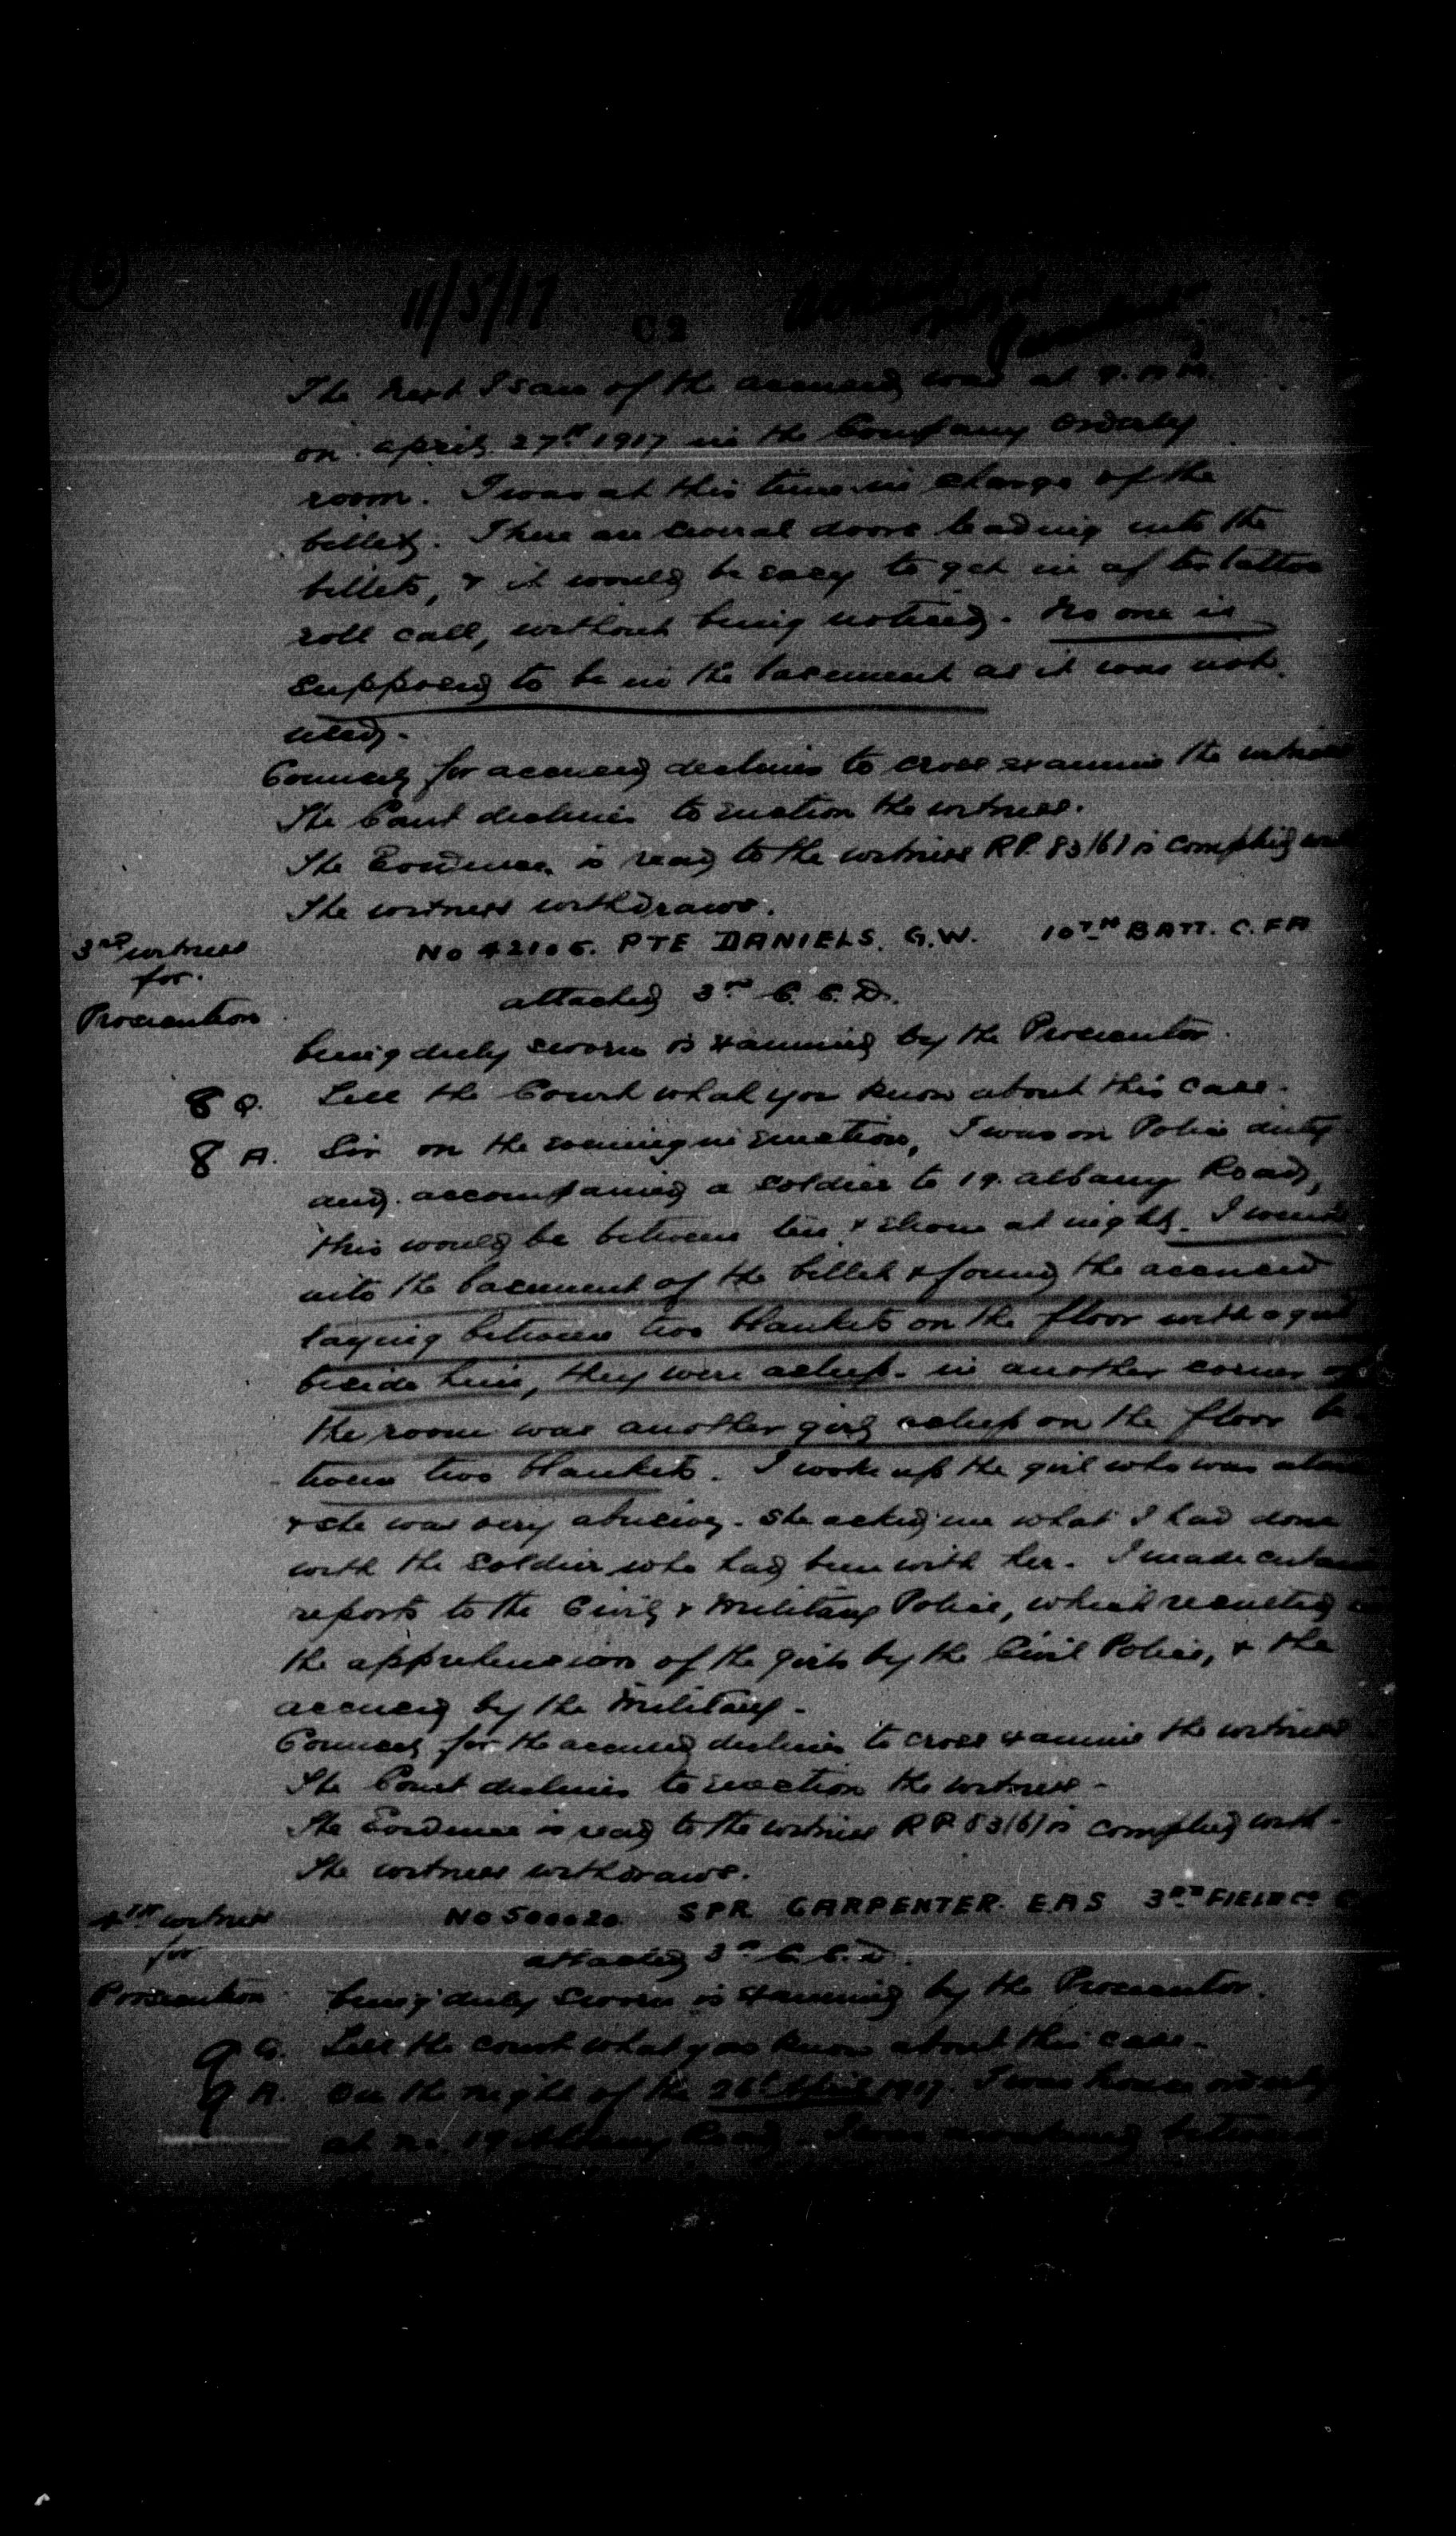 11/5/17
C 2
The next I saw of the accused was at 9. A.M.
on April 27th 1917 in the Company Orderly
room. I was at this time in charge of the
billets. There are several doors leading into the
billets, & it would be easy to get in after tattoo
roll call, without being noticed. No one is
supposed to be in the basement as it was not
used.
Counsel for accused declines to cross examine the witness
The Court declines to question the witness.
The Evidence is read to the witness R.P. 83(b) is complied with
The witness withdraws.
3rd witness
for
Prosecution
No 42106. PTE DANIELS. G.W. 10TH BATT. C.F.A
attached 3rd C.C.D.
being duly sworn is examined by the Prosecutor.
8 Q. Tell the Court what you know about this case.
8 A. Sir on the evening in question, I was on Police duty
and accompanied a soldier to 19. Albany Road,
this would be between ten & eleven at night. I went
into the basement of the billet & found the accused
laying between two blankets on the floor with a girl
beside him, they were asleep. in another corner of
the room was another girl asleep on the floor be-
tween two blankets. I woke up the girl who was alone
& she was very abusive. She asked me what I had done
with the soldier who had been with her. I made certain
reports to the Civil & Military Police, which resulted in
the apprehension of the girls by the Civil Police, & the
accused by the Military.
Counsel for the accused declines to cross examine the witness
The Court declines to question the witness.
The Evidence is read to the witness R.P. 83(b) is complied with.
The witness withdraws.
4th witness
for
Prosecution
No 500020. SPR CARPENTER. E.A.S 3RD FIELD CO
attached 3rd C.C.D.
being duly sworn is examined by the Prosecutor.
9 Q. Tell the court what you know about this case.
9 A. On the night of the 26th April 1917. I was house orderly
at No. 19 Albany Road. I was awakened between